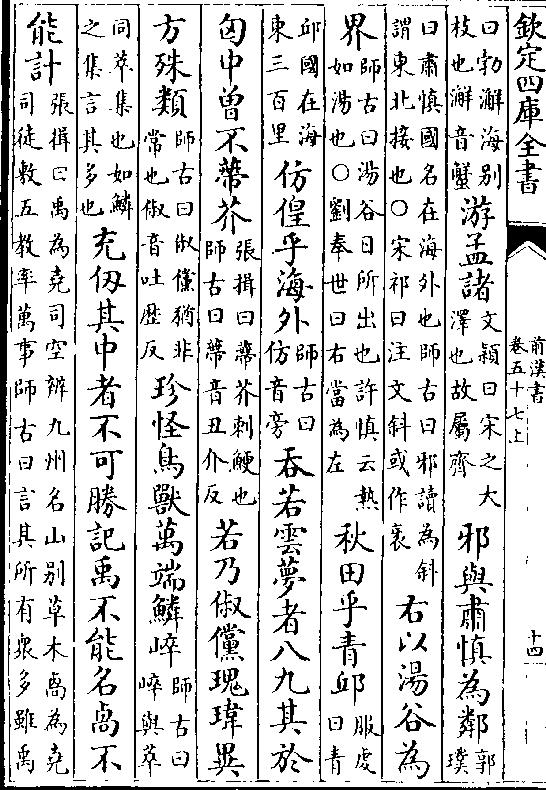 欽定四庫全書
前漢書
卷五十七上
十四
曰勃澥海别枝也澥音蟹游孟諸文穎曰宋之大澤也故屬齊邪與肅慎為鄰郭璞
曰肅慎國名在海外也師古曰邪讀為斜謂東北接也○宋祁曰注文斜或作衺右以湯谷為
界師古曰湯谷日所出也許慎云熱如湯也○劉奉世曰右當為左秋田乎青邱服虔曰青
邱國在海東三百里仿偟乎海外師古曰仿音旁吞若雲夢者八九其於
匈中曾不蔕芥張揖曰蔕芥刺鯁也師古曰蔕音丑介反若乃俶儻瑰瑋異
方殊類師古曰俶儻猶非常也俶音吐歴反珍怪鳥獸萬端鱗崪師古曰崪與萃
同萃集也如鱗之集言其多也充仭其中者不可勝記禹不能名卨不
能計張揖曰禹為堯司空辨九州名山别草木卨為堯司徒敷五教率萬事師古曰言其所有衆多雖禹